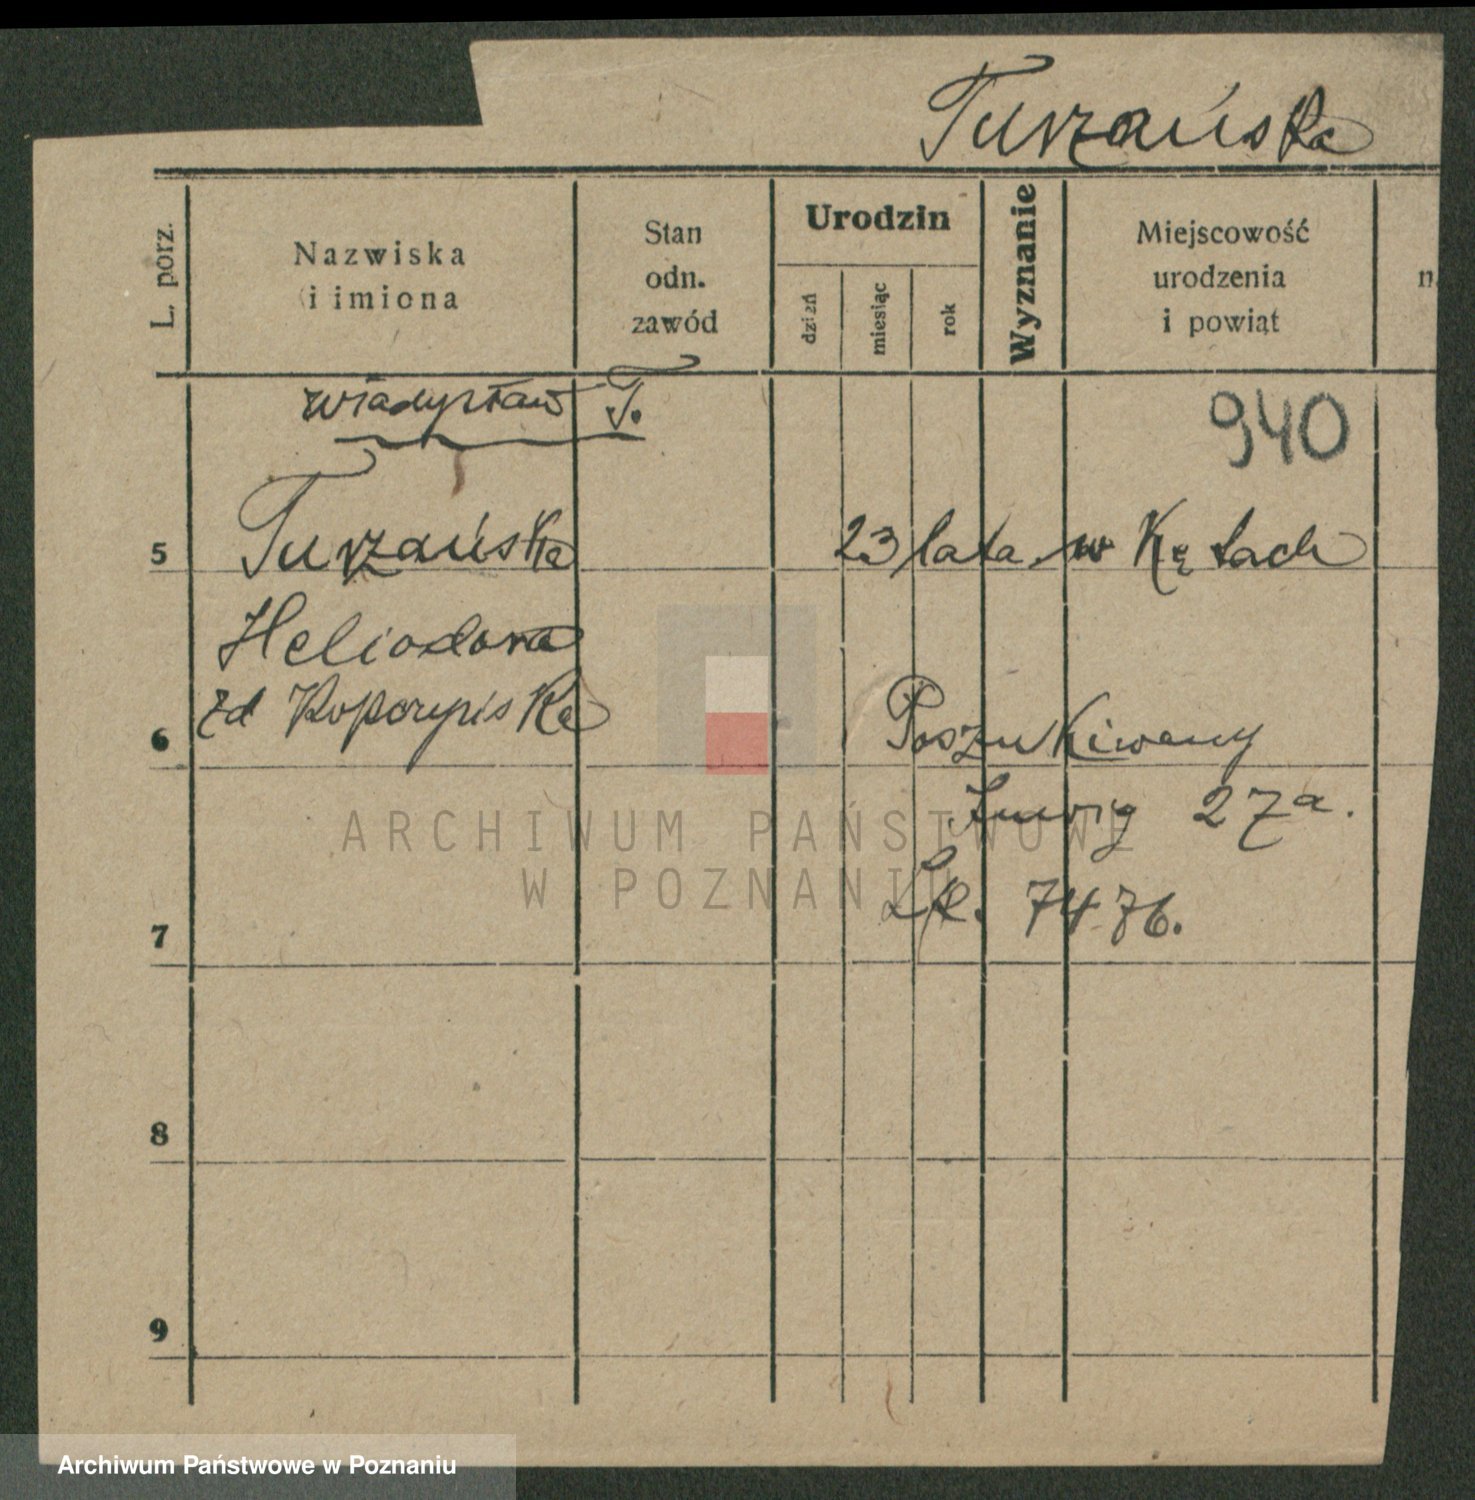 Turzańska
L. porz.
Nazwiska
i imiona
Stan
odn.
zawód
Urodzin
dzień
miesiąc
rok
Wyznanie
Miejscowość
urodzenia
i powiąt
n
Władysław T.
940
5 Turzańska 23 lata w Kętach
Heliodora
6 zd Poszukiwany
27a.
7 7476.
8
9
ARCHIWUM PAŃSTWOWE
W POZNANIU
Archiwum Państwowe w Poznaniu